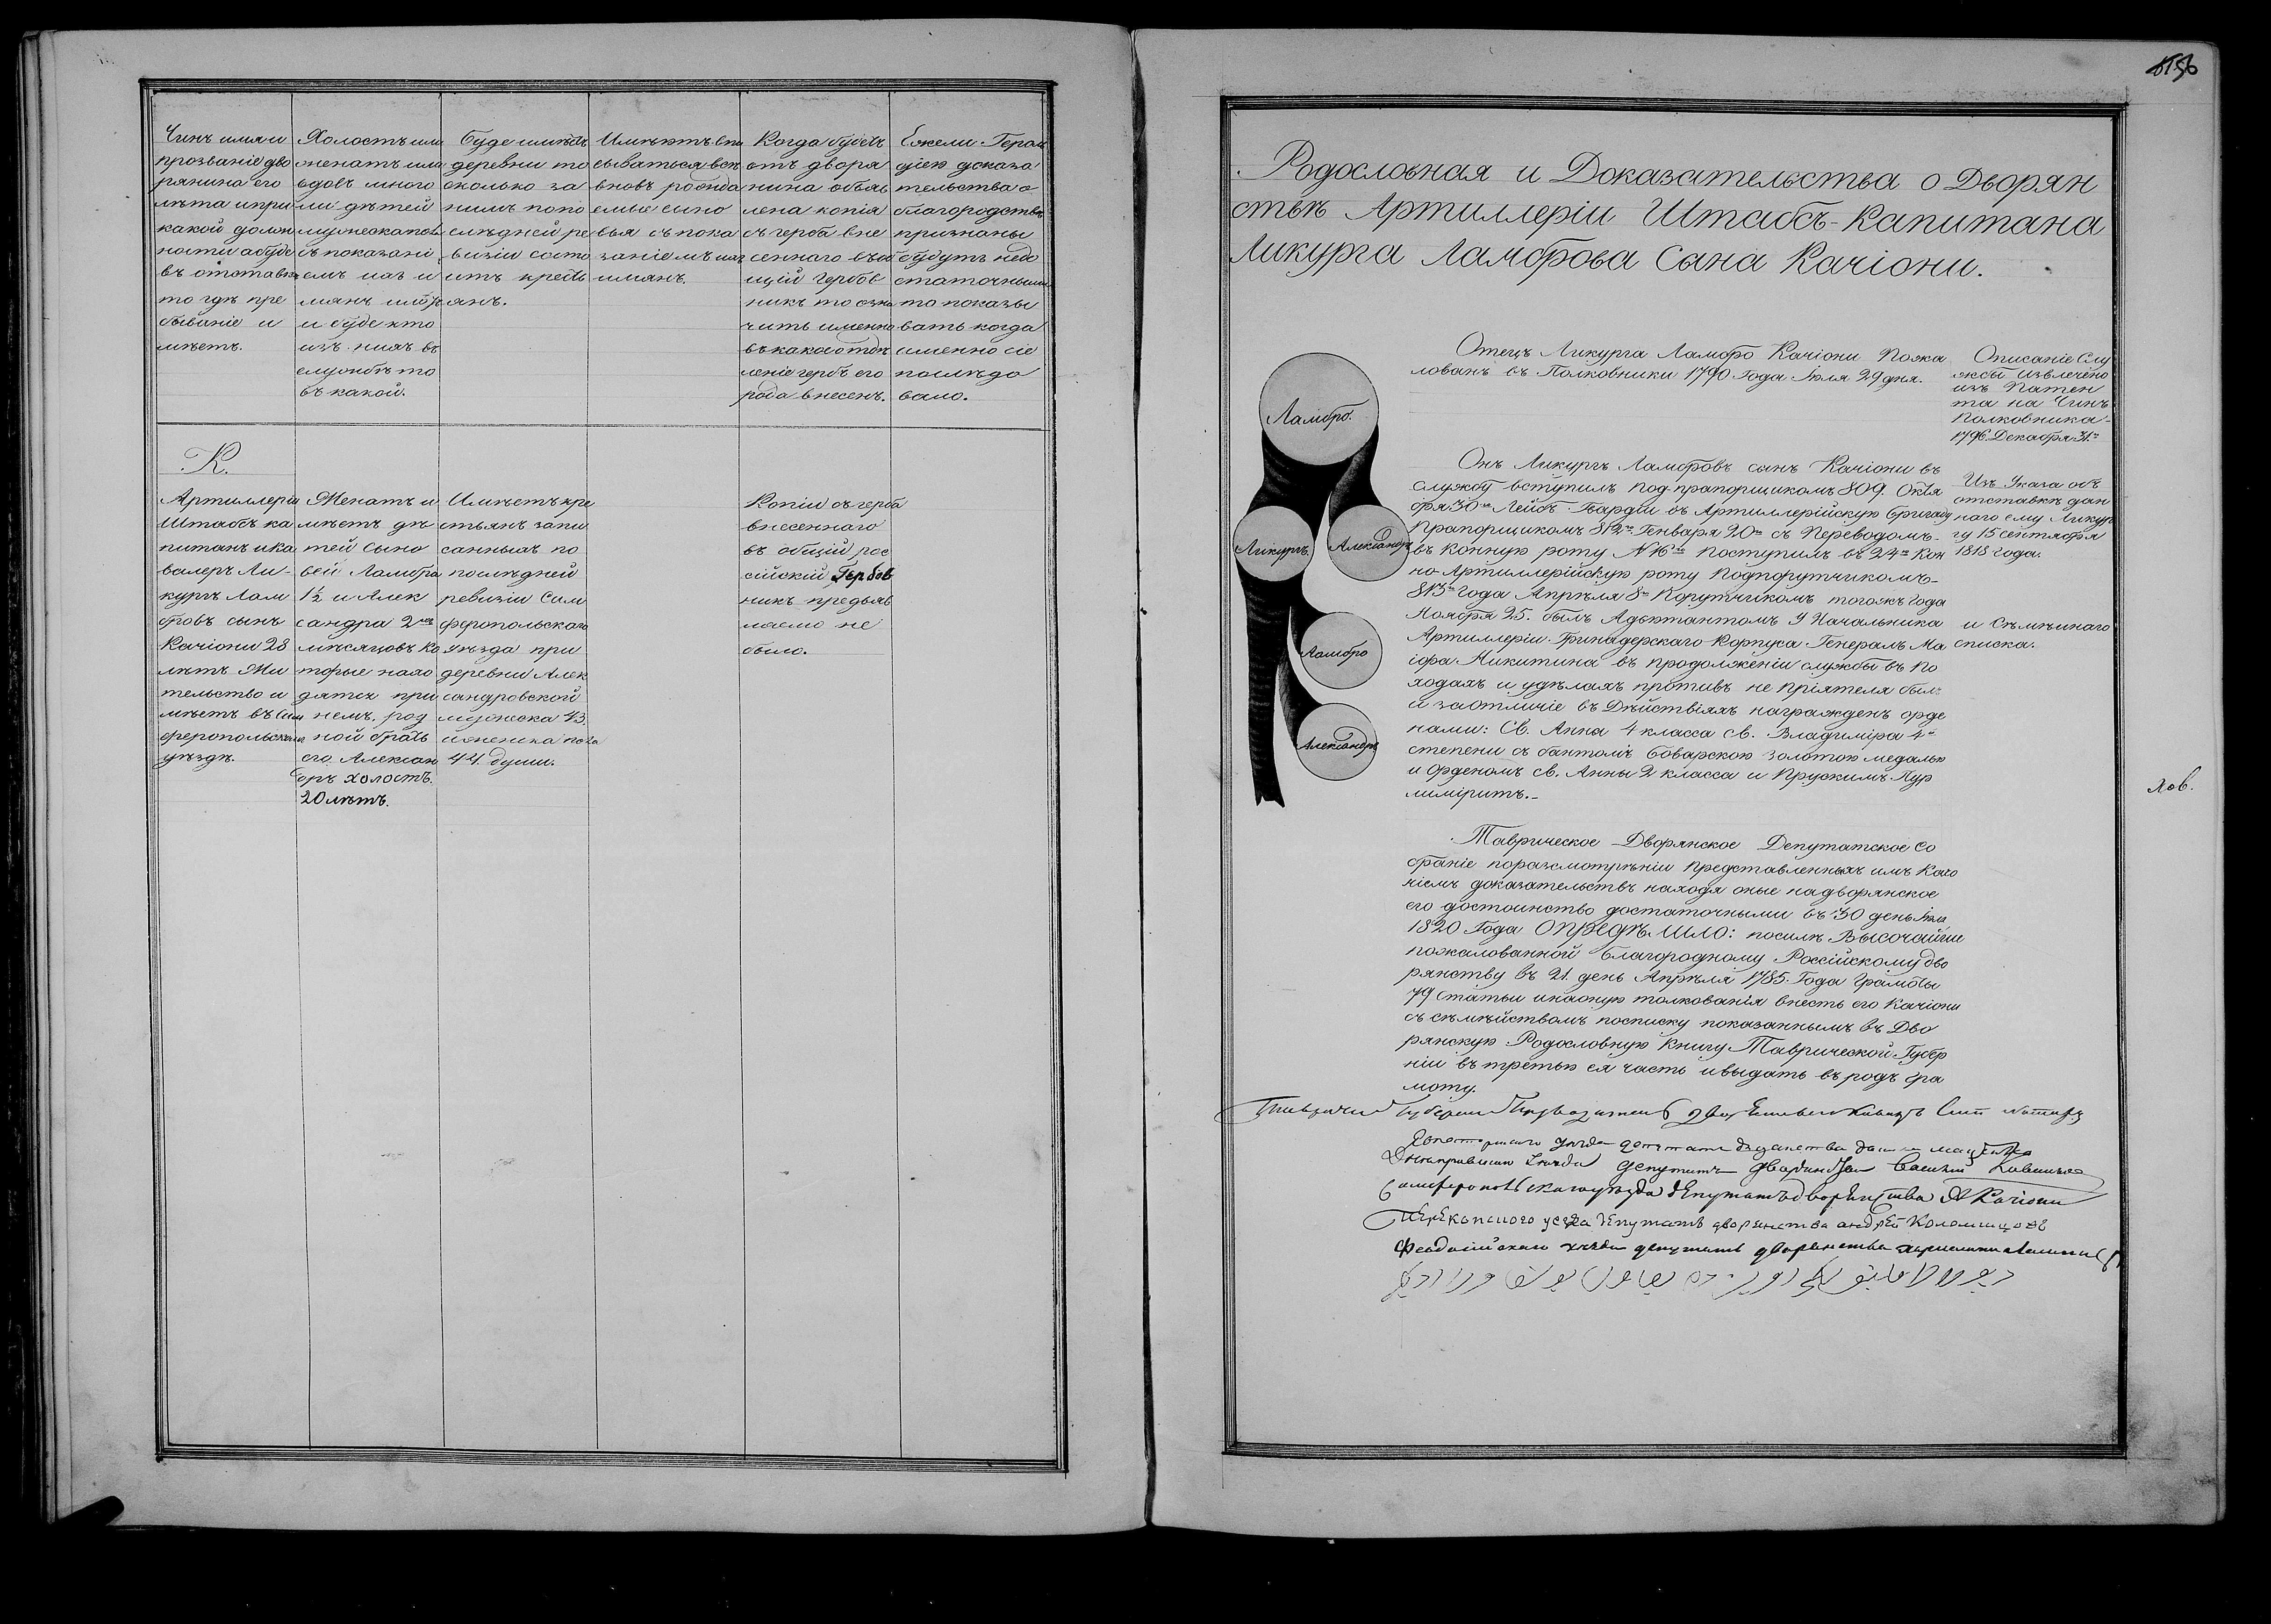 Чинъ имя и
прозваніе дво
рянина его
лѣта и при
какой долж
ности а буде
въ отставке
то гдѣ пре
бываніе и
мѣетъ.
Холостъ или
женатъ или
вдовъ много
ли дѣтей
мужескаполо
съ показані
емъ ихъ и
мянъ
и буде кто
изъ нихъ въ
службѣ то
въ какой.
буде имѣтъ
деревни то
сколько за
нимъ по по
слѣдней ре
визіи состо
итъ кресть
янъ.
Имѣютъ впи
сываться всѣ
вновъ рожда
емые сыно
вья съ пока
заніемъ ихъ
имянъ.
Когда будетъ
отъ дворя
нина объяв
лена копія
съ герба вне
сеннаго въ об
щій Гербов
никъ то озна
чить именно
въ какое отдѣ
леніе гербъ его
рода внесенъ.
Ежели Герол
діею доказа
тельства о
благородствѣ
признаны
будутъ недо
статочными
то показы
вать когда
именно сіе
послѣдо
вало.
К.
Артиллеріи
Штабсъ ка
питанъ и ка
валеръ Ли-
кургъ Лам
бровъ сынъ
Качіони 28
лѣтъ Жи
тельство и
мѣетъ въ Сим
феропольском
уѣздѣ.
Женатъ и
мѣетъ дѣ
тей сыно
вей Ламбра
1½ и Алек
сандра 2хъ
мѣсяцовъ Ко
торые нахо
дятся при
немъ. род
ной братъ
его Алексан
дръ холостъ.
20 лѣтъ.
Имѣетъ кре
стьянъ запи
санныхъ по
послѣдней
ревизіи Сим
феропольскаго
уѣзда при
деревни Алек
сандровской
мужеска 43.
и женска пола
44 души.
Копіи съ герба
внесеннаго
въ общій рос
сійскій Гербов
никъ предъяв
ляемо не
было.
Родословная и Доказательства о Дворян
ствѣ Артиллеріи Штабсъ-Капитана
Ликурга Ламброва Сына Качіони.
Ламбро.
Ликургъ.
Александръ
Ламбро
Александръ
Отецъ Ликурга Ламбро Качіони Пожа
лованъ въ Полковники 1790 Года Іюля 29 дня.
Описаніе Слу
жбы извлечено
изъ Патен
та на Чинъ
Полковника-
1796. Декабря 31.го
Онъ Ликургъ Ламбровъ сынъ Качіони въ
службу вступилъ Под-прапорщикомъ 809. Октя
бря 30го Лейбъ Гвардіи въ Артиллерійскую бригаду
Прапорщикомъ 812го Генваря 20го съ Переводомъ-
въ Конную роту № поступилъ въ 24ю Кон
но Артиллерійскую роту Подпорутчикомъ-
813го года Апрѣля 8го Порутчикомъ тогожъ года
Ноября 25. былъ Адъютантомъ У Начальника
Артиллеріи Гринадерскаго Корпуса Генералъ Ма
іора Никитина въ продолженіи службы въ По
ходахъ и удѣлахъ противъ не пріятеля былъ
и за отличіе въ Дѣйствіяхъ награжденъ орде
нами: Св. Анна 4 класса св. Владиміра 4й
степени съ бантомъ боварскою золотою медалью
и Орденомъ св. Анны 2 класса и Прускимъ Пур
лимеритъ.-
Изъ Указа объ
отставкѣ дан
наго ему Ликур
гу 15 сентября
1818 года.
и Съмѣинаго
списка.
Таврическое Дворянское Депутатское Со
браніе поразсмотрѣніи представленныхъ имъ Качо
ніемъ доказательствъ находя оные на дворянское
его достоинство достаточными въ 30 день Іюля
1820 Года Опредѣлило: посилѣ Высочайше
пожалованной благородному Россійскому дво
рянству въ 21. день Апрѣля 1785. Года Грамоты
79 Статьи и наоную толкованія внесть его Качіони
съ съмѣйствомъ посписку показаннымъ въ Дво
рянскую Родословную Книгу Таврической Губер
ніи въ третью ея часть и выдать въ родъ Гра
моту.
уѣзда депутатъ
уѣзда депутатъ дворянства Василій
Симферопольскаго уѣзда депутатъ дворянства А Качіони
Перекопскаго уезда депутатъ дворянства андрей Коломицовъ
Феодосійскаго уѣзда депутатъ дворянства
лов.